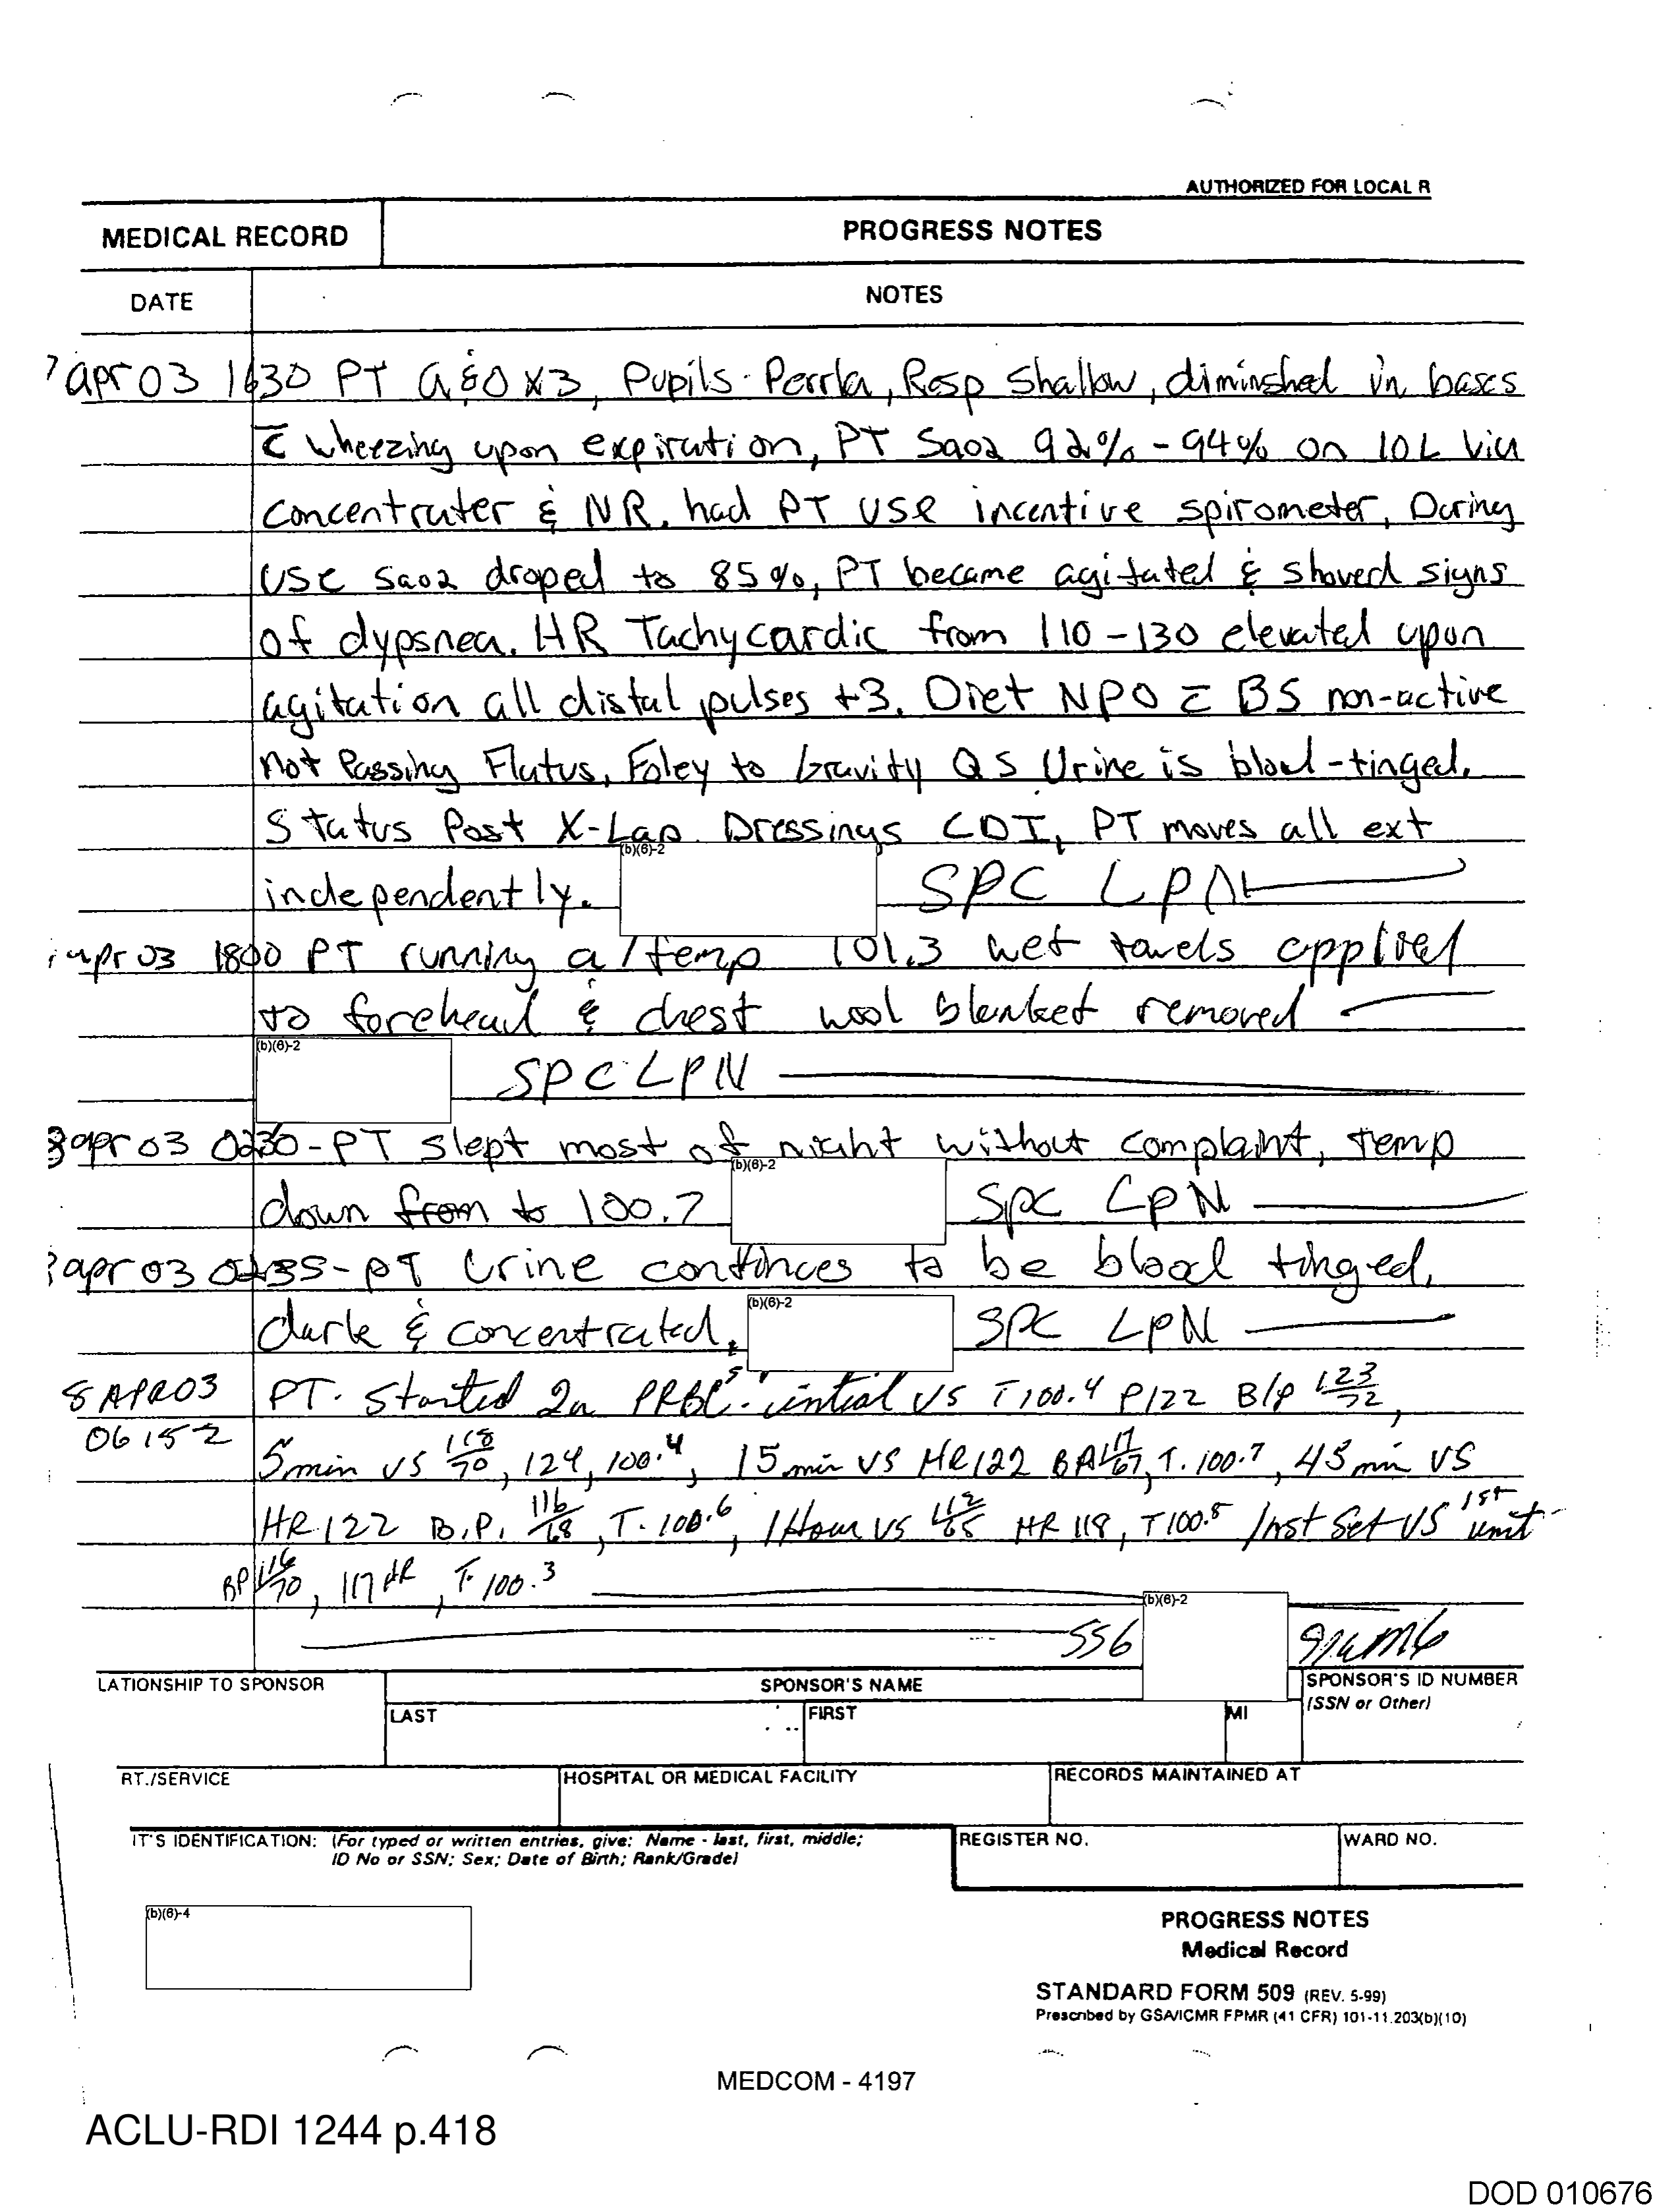 AUTHORIZED FOR LOCAL R
MEDICAL RECORD
PROGRESS NOTES
DATE
NOTES
7 apr 03 1630 PT A&O x3, Pupils Perrla, Resp shallow, diminshed in bases
c̅ wheezing upon expiration, PT SaO2 92% - 94% on 10L via
concentrater & NR. had PT use incentive spirometer, During
use SaO2 droped to 85%, PT became agitated & showed signs
of dypsnea. HR Tachycardic from 110-130 elevated upon
agitation all distal pulses +3. Diet NPO c̅ BS non-active
not Passing Flatus, Foley to Gravity QS Urine is blood-tinged.
Status Post X-Lap Dressings CDI, PT moves all ext
independently. (b)(6)-2 SPC LPN
apr 03 1800 PT running a temp 101.3 wet towels applied
to forehead & chest wool blanket removed
(b)(6)-2 SPC LPN
8 apr 03 0230 - PT slept most of night without complaint, temp
down from to 100.7 (b)(6)-2 SPC LPN
apr 03 0235 - PT Urine continces to be blood tinged,
dark & concentrated. (b)(6)-2 SPC LPN
8 APR 03 PT. Started 2u PRBC's - intial VS T 100.4 P122 B/P 123/72,
0615 5 min VS 118/70, 124, 100.4, 15 min VS HR 122 BP 117/67, T. 100.7, 45 min VS
HR 122 B.P. 116/68, T. 100.6, 1 Hour VS 112/65 HR 118, T 100.5 last Set VS 1st unit
BP 116/70, 117 HR, T. 100.3
SSG (b)(6)-2 91WM6
LATIONSHIP TO SPONSOR
SPONSOR'S NAME
SPONSOR'S ID NUMBER
(SSN or Other)
LAST
FIRST
MI
RT./SERVICE
HOSPITAL OR MEDICAL FACILITY
RECORDS MAINTAINED AT
IT'S IDENTIFICATION: (For typed or written entries, give: Name - last, first, middle;
ID No or SSN; Sex; Date of Birth; Rank/Grade)
REGISTER NO.
WARD NO.
(b)(6)-4
PROGRESS NOTES
Medical Record
STANDARD FORM 509 (REV. 5-99)
Prescribed by GSA/ICMR FPMR (41 CFR) 101-11.203(b)(10)
MEDCOM - 4197
ACLU-RDI 1244 p.418
DOD 010676